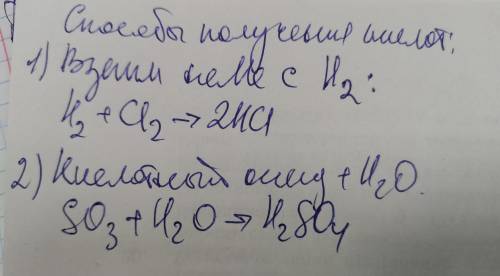 Способы получения кислот:
1) Взаим неМе с H₂:
H₂ + Cl₂ → 2HCl
2) Кислотный оксид + H₂O.
SO₃ + H₂O → H₂SO₄